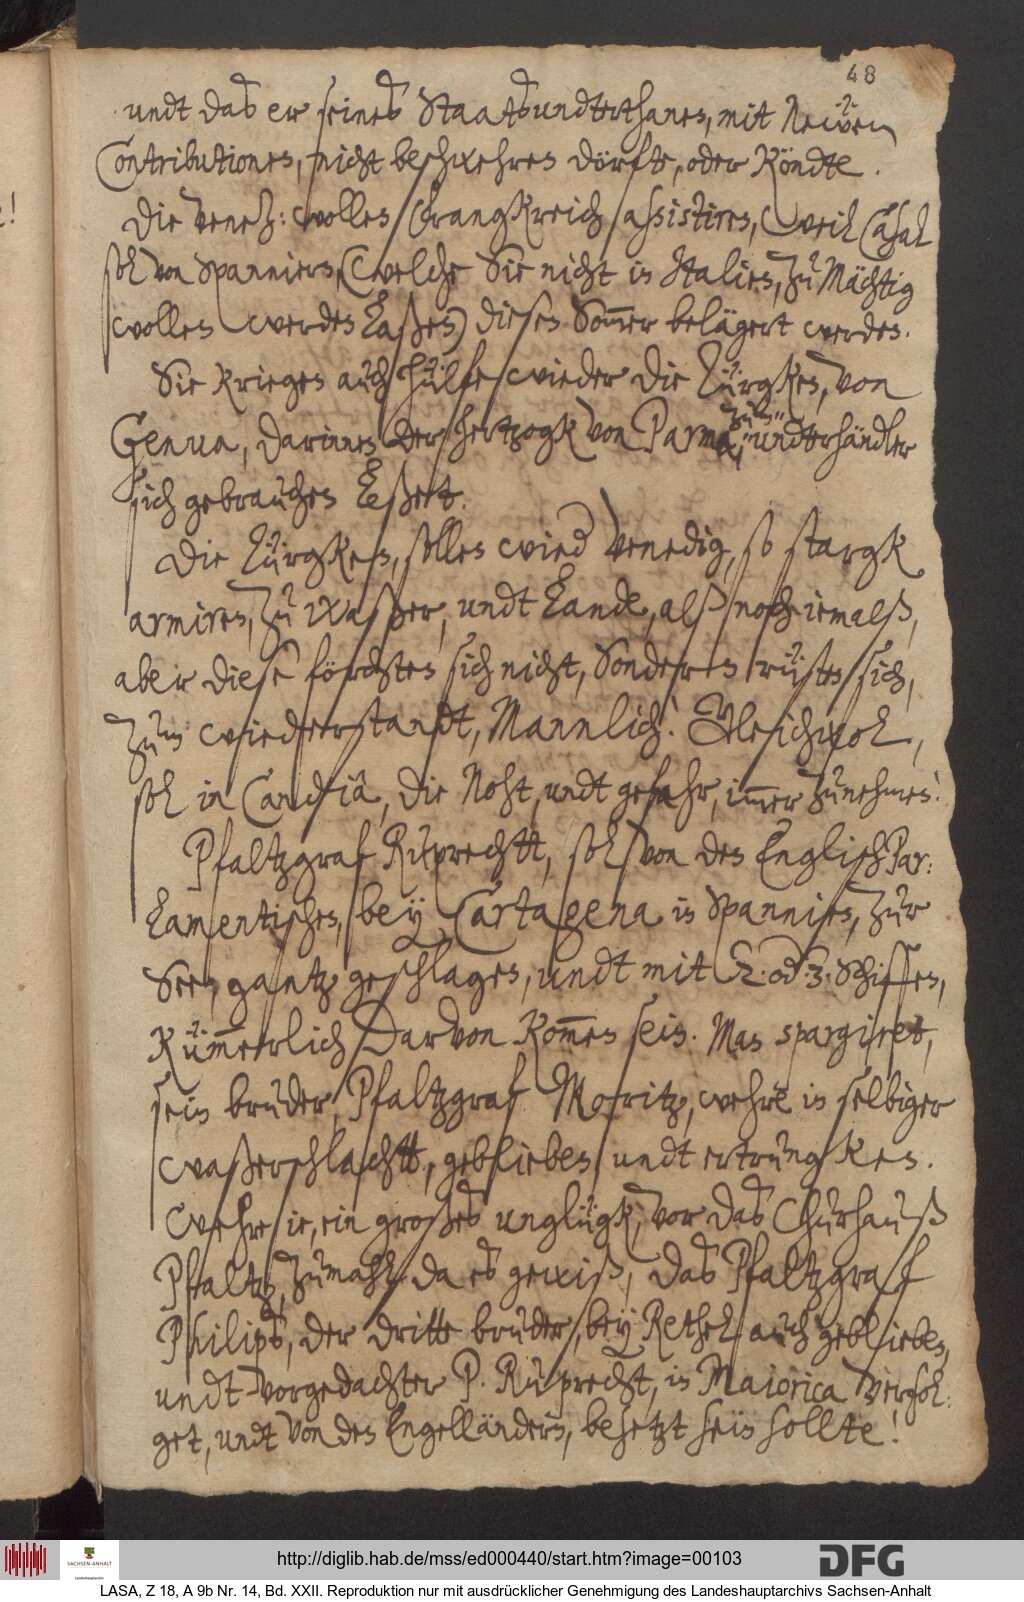 48
undt das er seines Staats undterthanen, mit Neẅen
Contributionen, nicht beschwehren dörfte, oder Köndte.
Die Venez: wollen Frangkreich assistiren, weil Casal
sol von Spanniern, (welche Sie nicht in Italien, zu Mächtig
wollen werden laßen) diesen Sommer belägert werden.
Sie kriegen auch hülfe wieder die Türgken, von
Genua, darinnen der hertzogk von Parma, zum
undterhändler
sich gebrauchen leßett.
Die Türgken, sollen wied Venedig, so stargk
armiren, zu waßer, undt Lande, alß noch iemalß,
aber diese förchten sich nicht, Sondern rüsten sich,
zum wiederstandt, Mannlich! Gleichwol,
sol in Candia, die Noht, undt gefahr, im̄er zunehmen!
Pfaltzgraf Ruprechtt, sol von den Englisch Par:
lamentischen, bey Cartagena in Spannien, zur
See, gantz geschlagen, undt mit 2. od 3. Schiffen,
Küm̄erlich Darvon kom̄en sein. Man spargiret,
sein bruder, Pfaltzgraf Moritz, wehre in selbiger
waßerschlachtt, geblieben undt ertrungken.
Wehre ie, ein großes unglügk, vor das Churhauß
Pfaltz, zumahl da es gewiß, das Pfaltzgraf
Philips, der dritte bruder, bey Rethel auch geblieben,
undt vorgedachter P. Ruprecht, in Maiorica verfol:
get, undt von den Engelländern, besetzt sein sollte!
http://diglib.hab.de/mss/ed000440/start.htm?image=00103
DFG
SACHSEN-ANHALT
LASA, Z 18, A 9b Nr. 14, Bd. XXII. Reproduktion nur mit ausdrücklicher Genehmigung des Landeshauptarchivs Sachsen-Anhalt